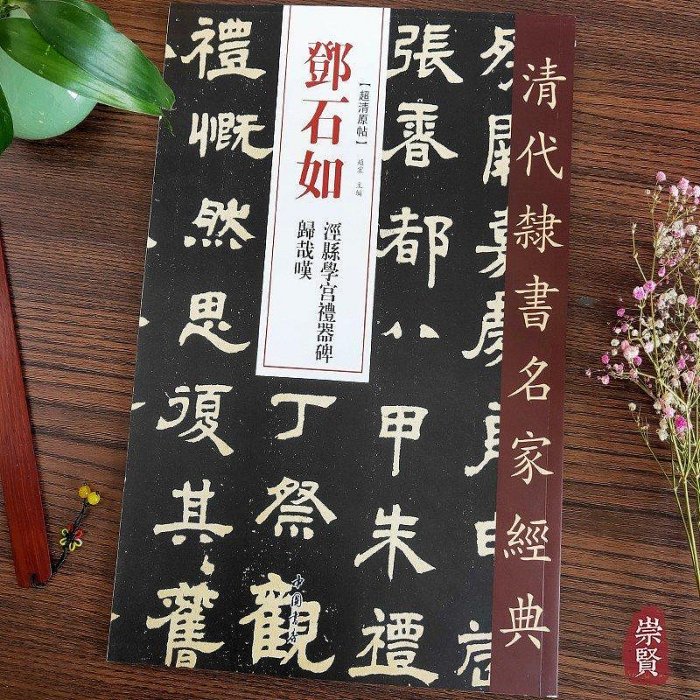 清代隸書名家經典
【超清原帖】
主編
鄧石如
涇縣學宮禮器碑
歸哉嘆
都八甲朱禮
丁祭觀
禮慨然思復其舊
中國書店
崇賢